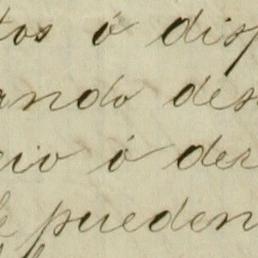 tos ó disp
ando des
cio ó der
pueden